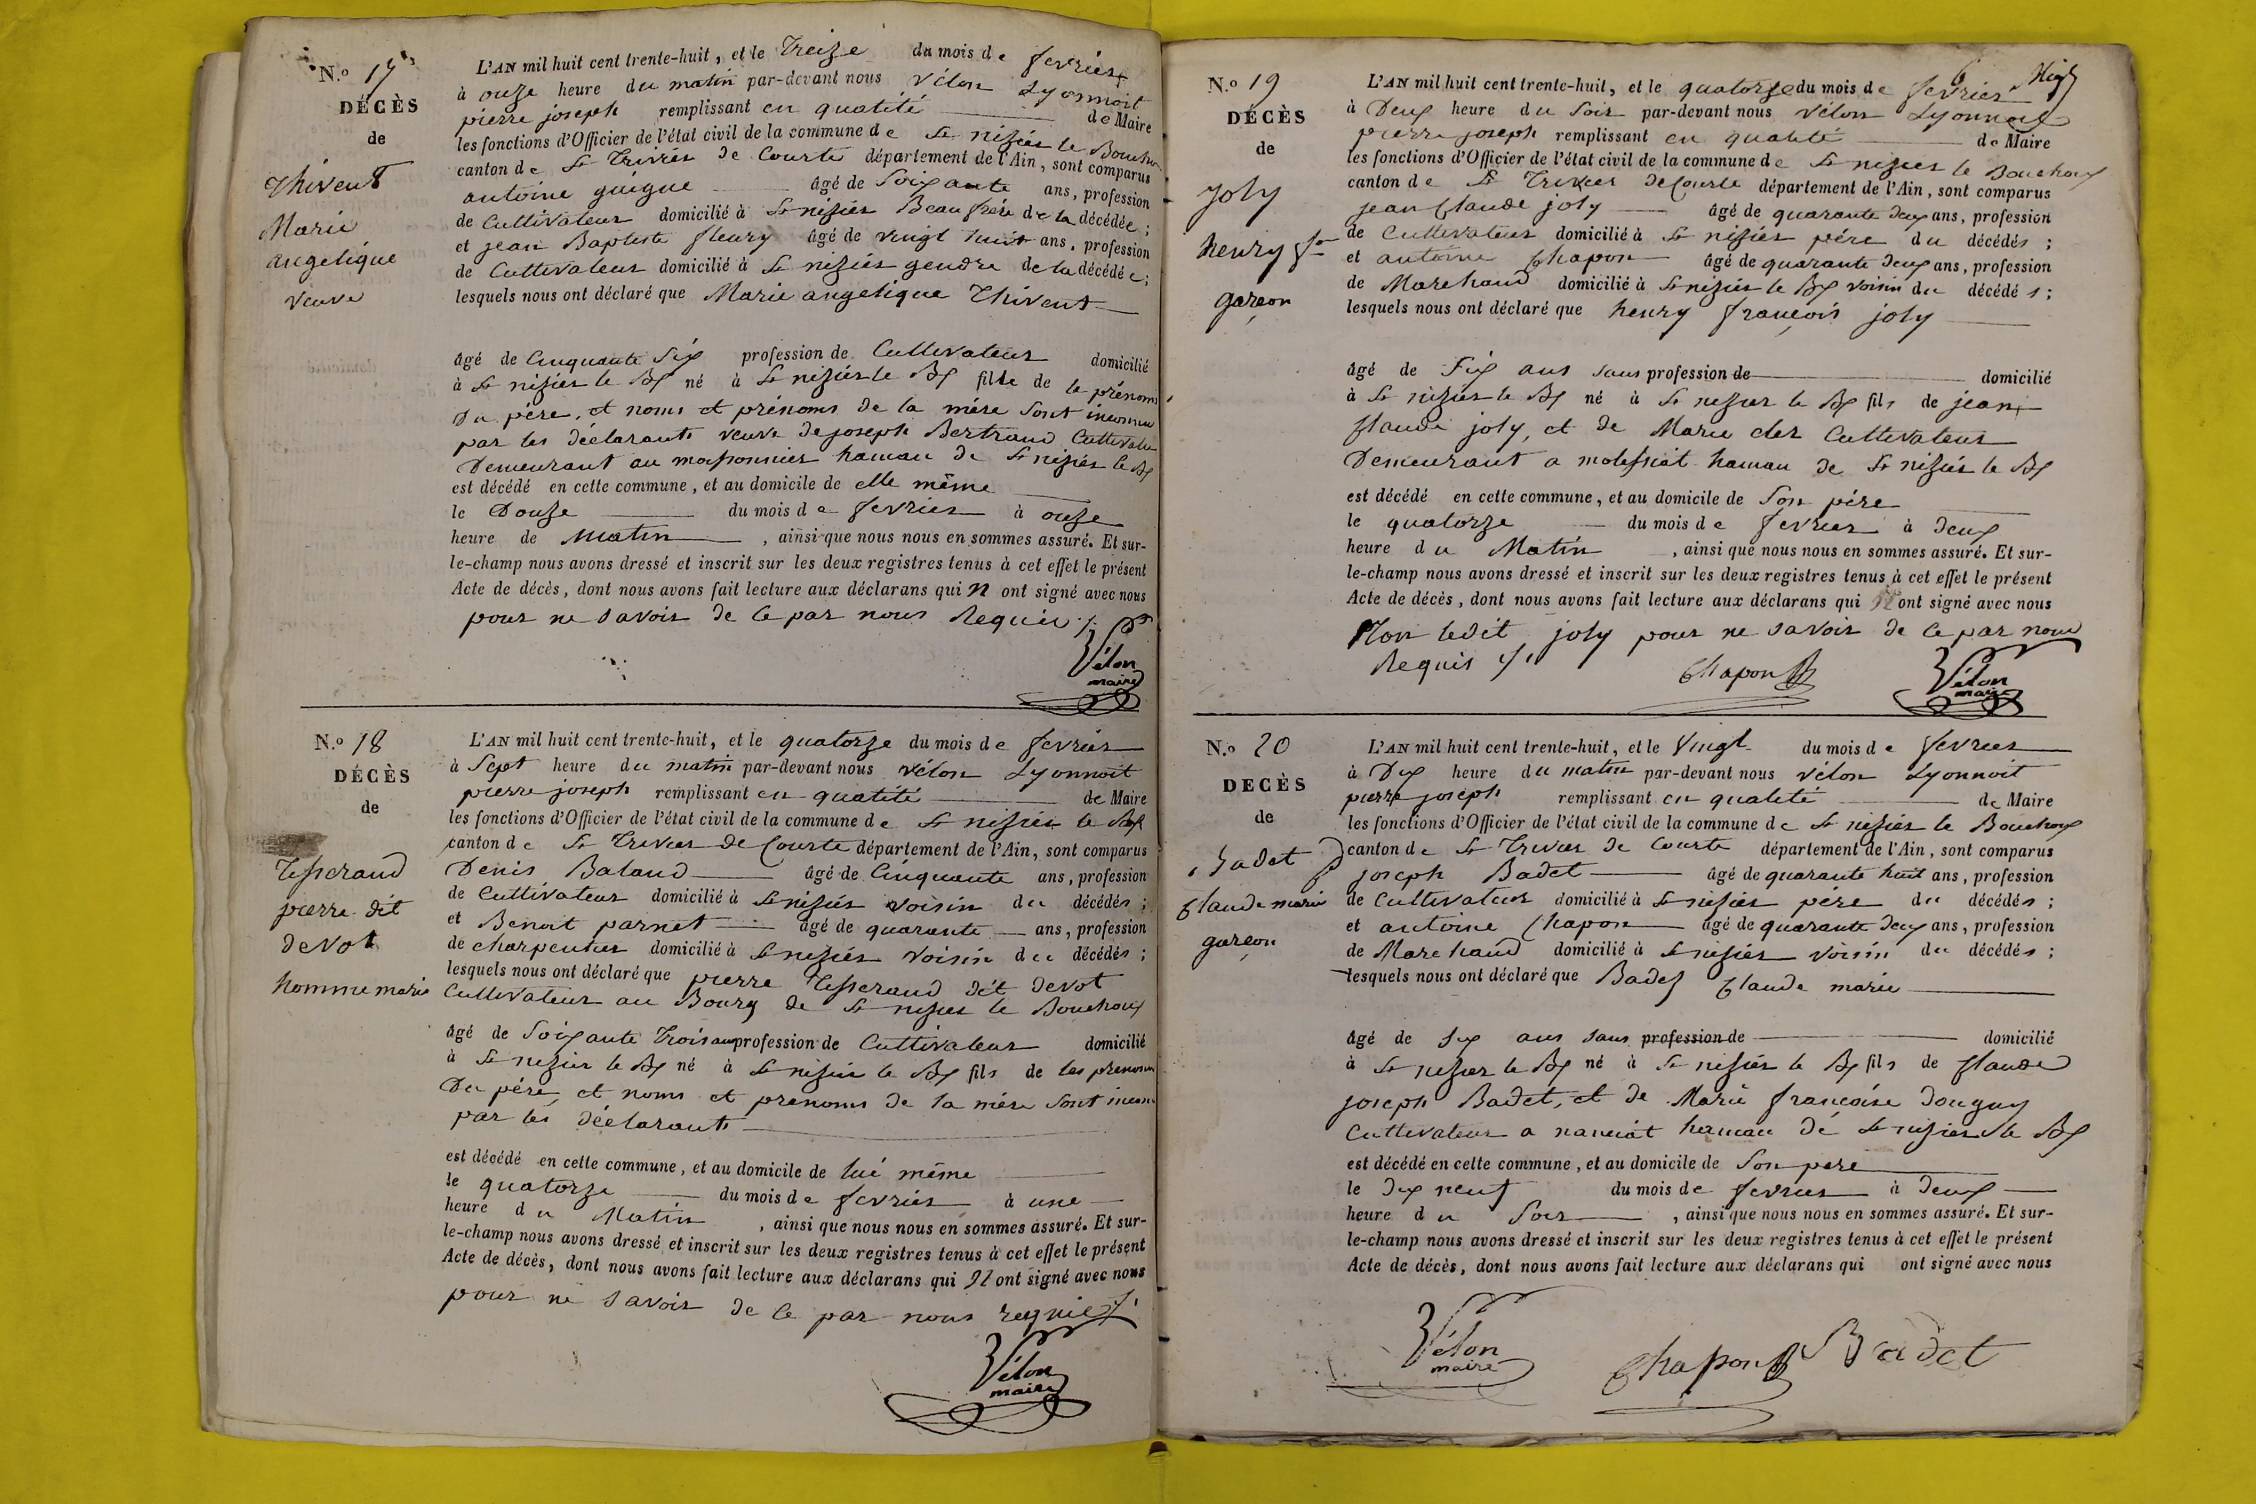 N.o 17
DÉCÈS
de
Thivent
Marie
angelique
veuve
L'AN mil huit cent trente-huit, et le Treize du mois de fevrier
à onze heure du matin par-devant nous Vélon Lyonnoit
pierre joseph remplissant en qualité de Maire
les fonctions d'Officier de l'état civil de la commune de St nizier le Bouchoux
canton de St Trivier de Courte département de l'Ain, sont comparus
antoine guigue âgé de Soixante ans, profession
de Cultivateur domicilié à St nizier Beaufrére de la décédée;
et jean Baptiste fleury âgé de vingt huit ans, profession
de Cultivateur domicilié à St nizier gendre de la décédée;
lesquels nous ont déclaré que Marie angelique Thivent
âgé de Cinquante Six profession de Cultivateur domicilié
à St nizier le Bx né à St nizier le Bx fille de le prénoms
Du pére, et noms et prénoms de la mére Sont inconnu
par les déclarants veuve de joseph Bertrand Cultivateur
Demeurant au moissonnier hamau de St nizier le Bx
est décédé en cette commune, et au domicile de elle même
le Douze du mois de fevrier à onze
heure de Matin, ainsi que nous nous en sommes assuré. Et sur-
le-champ nous avons dressé et inscrit sur les deux registres tenus à cet effet le présent
Acte de décès, dont nous avons fait lecture aux déclarans qui n ont signé avec nous
pour ne savoir de ce par nous Requis
Vélon
maire
N.o 18
DÉCÈS
de
Tisserand
pierre dit
devot
homme marié
L'AN mil huit cent trente-huit, et le quatorze du mois de fevrier
à Sept heure du matin par-devant nous Vélon Lyonnoit
pierre joseph remplissant en qualité de Maire
les fonctions d'Officier de l'état civil de la commune de St nizier le Bx
canton de St Trivier de Courte département de l'Ain, sont comparus
Denis Baland âgé de Cinquante ans, profession
de Cultivateur domicilié à St nizier voisin du décédés;
et Benoit parnet âgé de quarante ans, profession
de charpentier domicilié à St nizier voisin du décédés;
lesquels nous ont déclaré que pierre Tisserand dit devot
Cultivateur au Bourg de St nizier le Bouchoux
âgé de Soixante Trois ans profession de Cultivateur domicilié
à St nizier le Bx né à St nizier le Bx fils de les prenoms
Du pére, et noms et prenoms de la mére Sont incon
par les déclarants
est décédé en cette commune, et au domicile de lui même
le quatorze du mois de fevrier à une
heure du Matin, ainsi que nous nous en sommes assuré. Et sur-
le-champ nous avons dressé et inscrit sur les deux registres tenus à cet effet le présent
Acte de décès, dont nous avons fait lecture aux déclarans qui N ont signé avec nous
pour ne savoir de ce par nous requis
Vélon
maire
6
N.o 19
DÉCÈS
de
joly
henry f
garçon
L'AN mil huit cent trente-huit, et le quatorze du mois de fevrier
à Deux heure du Soir par-devant nous Vélon Lyonnoit
pierre joseph remplissant en qualité de Maire
les fonctions d'Officier de l'état civil de la commune de St nizier le Bouchoux
canton de St Trivier de Courte département de l'Ain, sont comparus
jean Claude joly âgé de quarante deux ans, profession
de Cultivateur domicilié à St nizier pére du décédés;
et antoine Chapon âgé de quarante deux ans, profession
de Marchand domicilié à St nizier le Bx voisin du décédés;
lesquels nous ont déclaré que henry françois joly
âgé de Six ans sans profession de domicilié
à St nizier le Bx né à St nizier le Bx fils de jean
Claude joly, et de Marie cler Cultivateur
Demeurant a molessiat hamau de St nizier le Bx
est décédé en cette commune, et au domicile de Son pére
le quatorze du mois de fevrier à deux
heure du Matin, ainsi que nous nous en sommes assuré. Et sur-
le-champ nous avons dressé et inscrit sur les deux registres tenus à cet effet le présent
Acte de décès, dont nous avons fait lecture aux déclarans qui ont signé avec nous
Non ledit joly pour ne savoir de ce par nous
Requis
Chapon
Vélon
maire
N.o 20
DÉCÈS
de
Badet
Claude marie
garçon
L'AN mil huit cent trente-huit, et le Vingt du mois de fevrier
à Dix heure du matin par-devant nous Vélon Lyonnoit
pierre joseph remplissant en qualité de Maire
les fonctions d'Officier de l'état civil de la commune de St nizier le Bouchoux
canton de St Trivier de Courte département de l'Ain, sont comparus
joseph Badet âgé de quarante huit ans, profession
de Cultivateur domicilié à St nizier pére du décédés;
et antoine Chapon âgé de quarante deux ans, profession
de Marchand domicilié à St nizier voisin du décédés;
lesquels nous ont déclaré que Badet Claude marie
âgé de six ans sans profession de domicilié
à St nizier le Bx né à St nizier le Bx fils de Claude
joseph Badet, et de Marie françoise donguy
Cultivateur a nanciat hamau de St nizier le Bx
est décédé en cette commune, et au domicile de Son pere
le dix neuf du mois de fevrier à deux
heure du Soir, ainsi que nous nous en sommes assuré. Et sur-
le-champ nous avons dressé et inscrit sur les deux registres tenus à cet effet le présent
Acte de décès, dont nous avons fait lecture aux déclarans qui ont signé avec nous
Vélon
maire
Chapon Badet